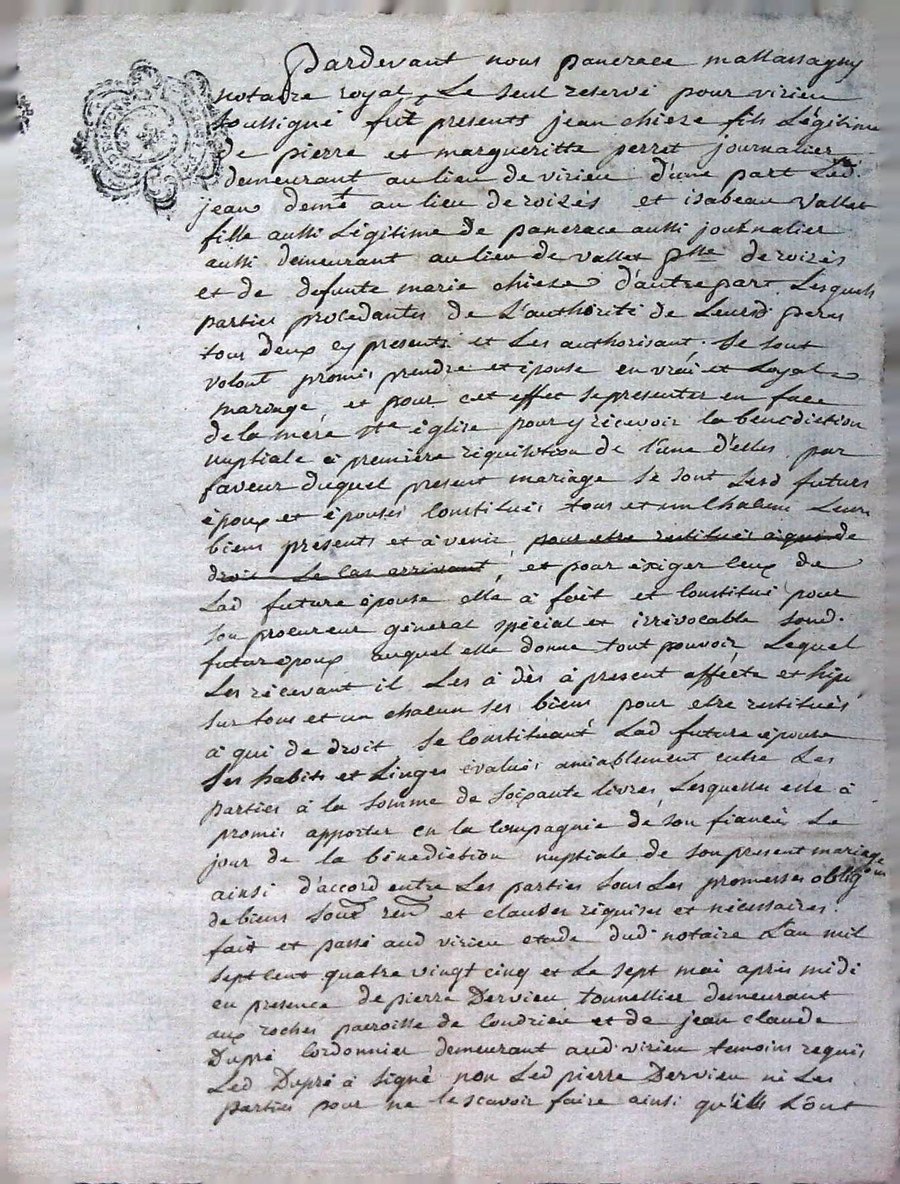 Pardevant nous pancrace mattassagny
notaire royal, Le seul reservé pour virieu
soussigné fut presents jean chieze fils Légitime
de pierre et margueritte perret journalier
demeurant au lieu de virieu d'une part Led.
jean demt au lieu de roizés et isabeau Vallet
fille aussi Légitime de pancrace aussi journalier
aussi demeurant au lieu de vallet psse de roizés
et de defunte marie chieze d'autre part Lesquels
parties procedantes de L'authorité de Leursd peres
tous deux cy presents et Les authorisant. Se sont
volont promis prendre et épouse en vrai et Loyal
mariage, et pour cet effet se presenter en face
de la mere ste église pour y recevoir la benediction
nuptiale à première réquisition de l'une d'elles, par
faveur duquel present mariage se sont Lesd futurs
époux et épouse constitués tous et un chacun Leurs
biens presents et à venir pour etre restitués à qui de
droit Le cas arrivant, et pour éxiger ceux de
Lad future épouse elle à fait et constitué pour
son procureur général spécial et irrévocable sond.
futur époux auquel elle donne tout pouvoir Lequel
Les récevant il Les à dès à present affecté et hipé
sur tous et un chacun ses biens pour etre restitués
à qui de droit se constituant Lad future épouse
ses habits et Linges évalués amiablement entre Les
parties à la somme de soixante livres Lesquelles elle à
promis apporter en la compagnie de son fiancé Le
jour de la bénédiction nuptiale de son present mariage
ainsi d'accord entre Les parties sous Les promesses obligons
de biens soum ren et clauses réquises et nécessaires.
fait et passé aud virieu etude dud notaire L'an mil
sept cent quatre vingt cinq et Le sept mai après midi
en presence de pierre Dervieu tonnellier demeurant
aux roches paroisse de Condrieu et de jean claude
Dupré Cordonnier demeurant aud virieu temoins requis
Led Dupré à signé non Led pierre Dervieu ni Les
parties pour ne le scavoir faire ainsi qu'ills L'ont